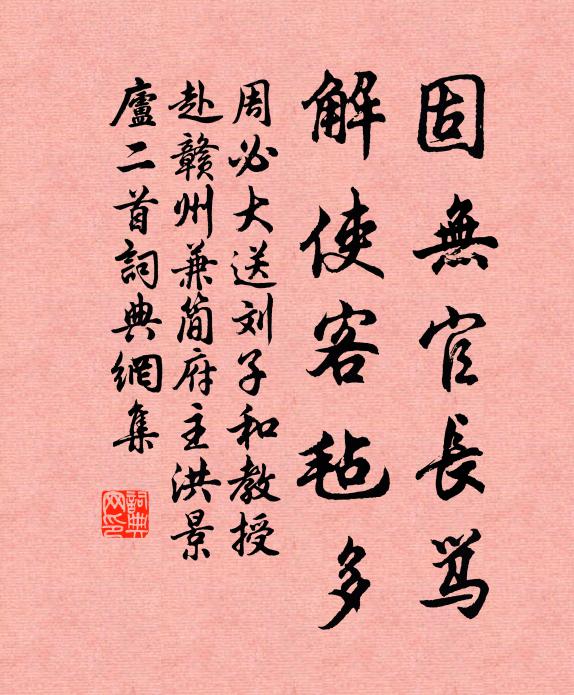 固無官長骂
解使客毡多
周必大送刘子和教授
赴赣州兼簡府主洪景
廬二首詞典網集
詞典
网印